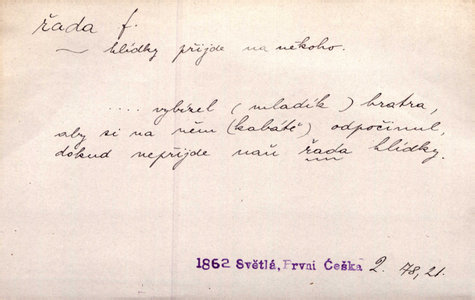 řada f.
~ hlídky přijde na někoho.
.... vybízel (mladík) bratra,
aby si na něm (kabátě) odpočinul,
dokud nepřijde naň řada hlídky.
1862 Světlá, První Češka 2. 78, 21.